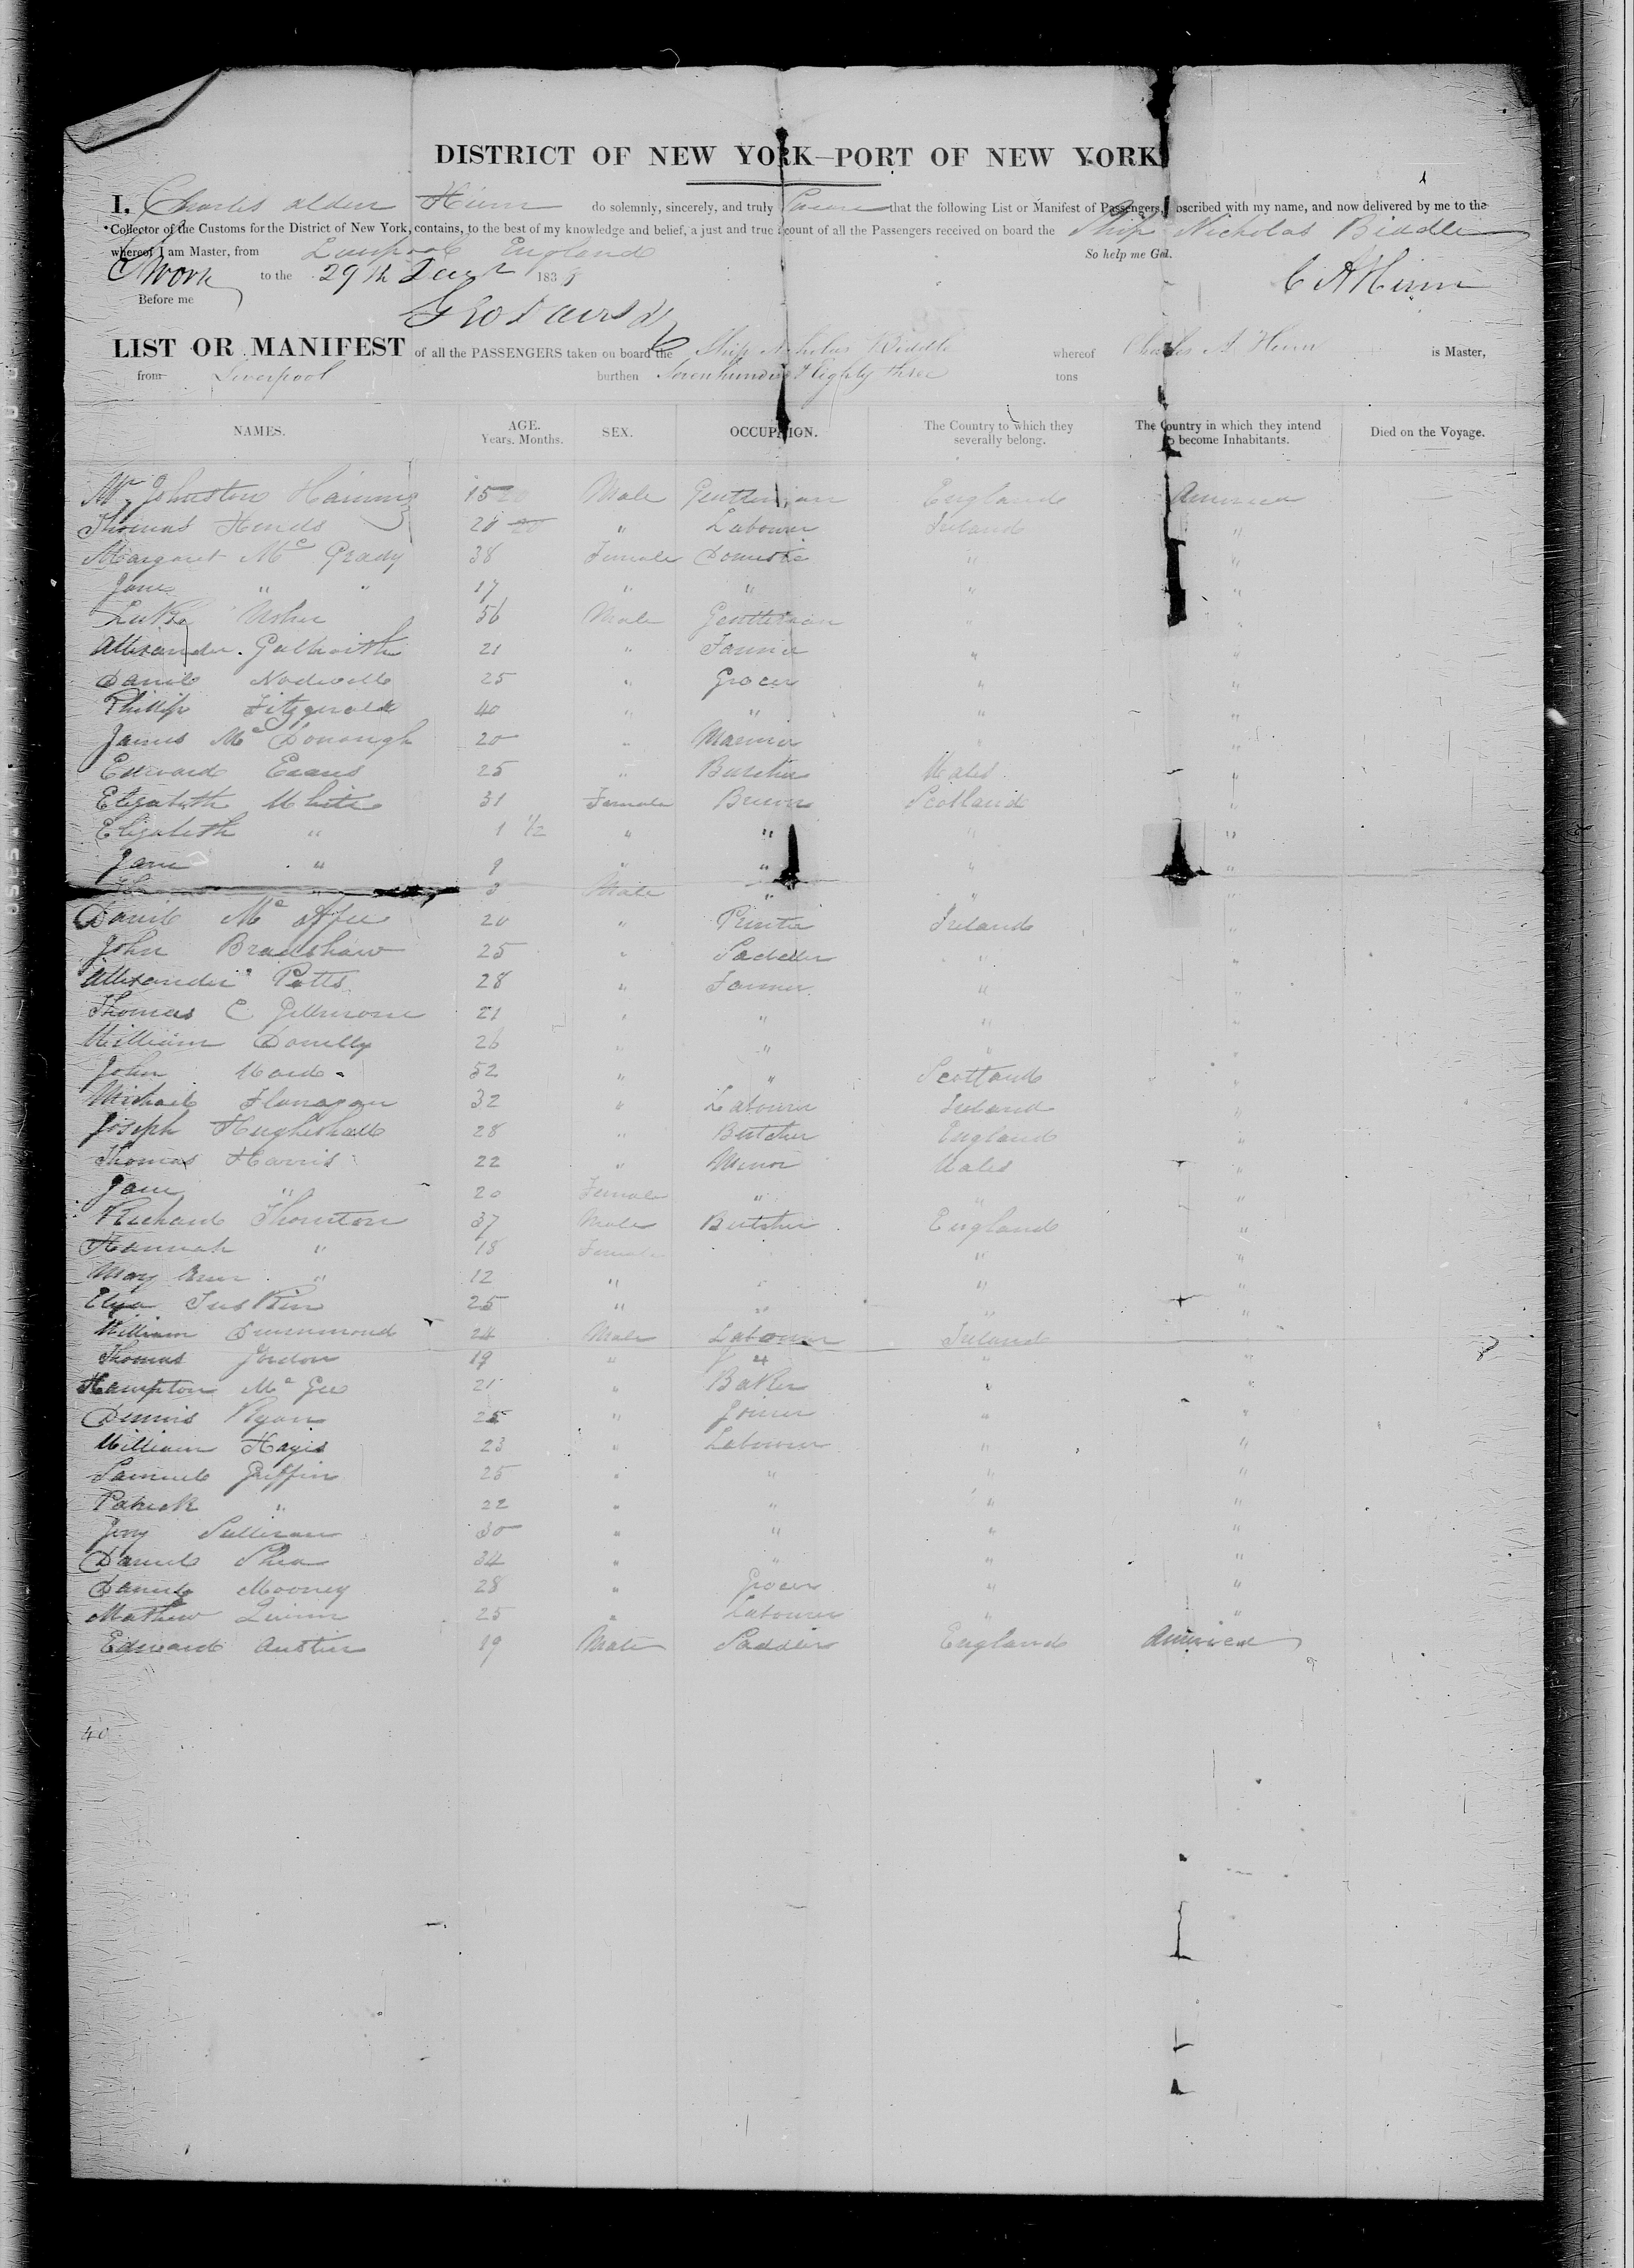 DISTRICT OF NEW YORK—PORT OF NEW YORK
I, Charles Alden do solemnly, sincerely, and truly Swear that the following List or Manifest of Passengers, scribed with my name, and now delivered by me to the
Collector of the Customs for the District of New York, contains, to the best of my knowledge and belief, a just and true count of all the Passengers received on board the Ship Nicholas Biddle
whereof I am Master, from Liverpool England So help me God.
Sworn to the 29th 183
Before me
LIST OR MANIFEST of all the PASSENGERS taken on board the Ship Nicholas Biddle whereof Charles A is Master,
from Liverpool burthen Seven hundred & Eighty three tons
NAMES. AGE. Years. Months. SEX. OCCUPATION. The Country to which they severally belong. The Country in which they intend to become Inhabitants. Died on the Voyage.
Mr Johnston 15 Male Gentleman England America
Thomas Hinds 20 " Labourer Ireland "
Margaret Mc Grady 38 Female Domestic " "
Jane " " 17 " " " "
Luke Usher 56 Male Gentleman " "
Allexander Galbraith 21 " Farmer " "
Daniel 25 " Grocer " "
Phillip Fitzgerald 40 " " " "
James Mc Donough 20 " " "
Edward Evans 25 " Butcher Wales "
Elizabeth White 31 Female Scotland "
Elizabeth " 1 1/2 " " " "
Jane " 9 " " " "
" 3 Male " " "
Daniel Mc Afee 20 " Printer Ireland "
John Bradshaw 25 " Saddler " "
Allexander Potts 28 " Farmer " "
Thomas C 21 " " " "
William Donelly 26 " " " "
John 52 " " Scotland "
Michael Flanagan 32 " Labourer Ireland "
Joseph 28 " Butcher England "
Thomas Harris 22 " Minor Wales "
Jane " 20 Female " " "
Richard Thornton 37 Male Butcher England "
Hannah " 18 Female " "
Mary Ann " 12 " " "
Eliza 25 " " " "
William Drummond 24 Male Labourer Ireland "
Thomas Jordon 19 " " " "
Hampton Mc Gee 21 " Baker " "
Dennis Ryan 25 " Joiner " "
William Hayis 23 " Labourer " "
Samuel Griffin 25 " " " "
Patrick " 22 " " " "
Jerry Sullivan 30 " " " "
Daniel Shea 34 " " " "
Daniel Mooney 28 " Grocer " "
Mathew Quinn 25 " Labourer " "
Edward Austin 19 Male Saddler England America
40